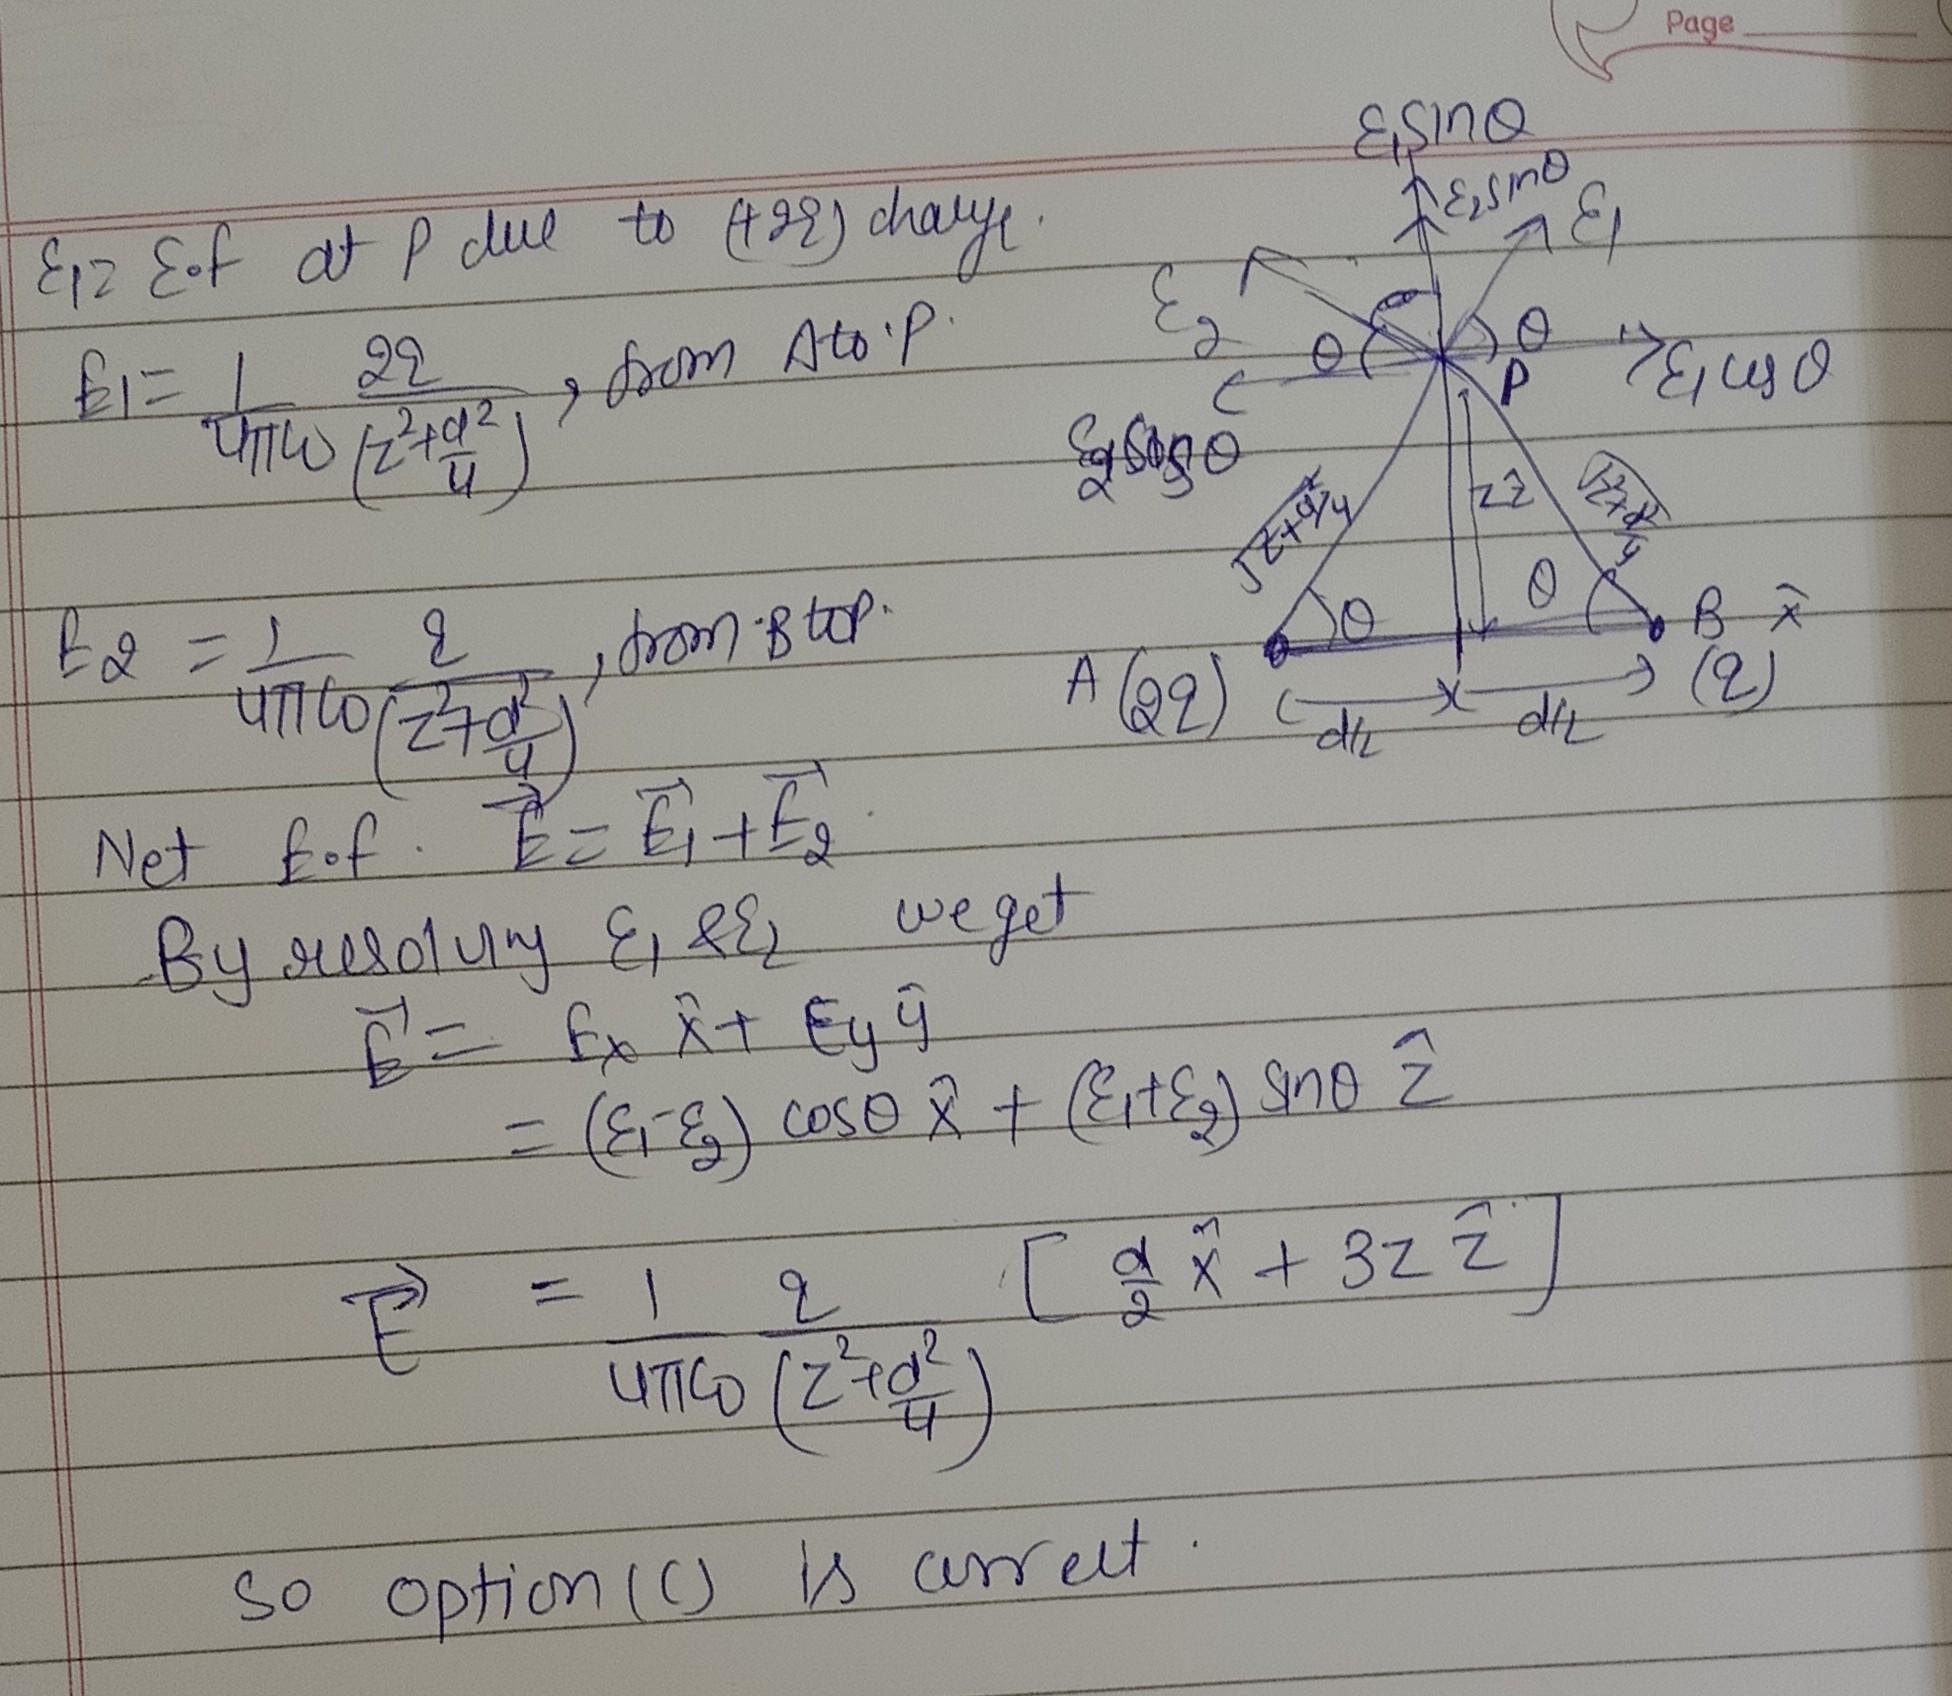 Page
E₁ = E.f at P due to (+2q) charge.
E₁ = 1/4πε₀ 2q/(z²+d²/4), from A to P.
E₂ = 1/4πε₀ q/(z²+d²/4), from B to P.
Net E.f. E⃗ = E⃗₁ + E⃗₂.
By resolving E₁ & E₂ we get
E⃗ = Eₓ x̂ + Ey ŷ
= (E₁-E₂) cosθ x̂ + (E₁+E₂) sinθ ẑ
E⃗ = 1/4πε₀ q/(z²+d²/4) [d/2 x̂ + 3z ẑ]
So option (C) is correct.
E₁sinθ
E₂sinθ
E₁
E₂
θ
θ
P
E₁cosθ
√z²+d²/4
z
√z²+d²/4
θ
θ
A (2q)
B x̂
(q)
d/2
d/2